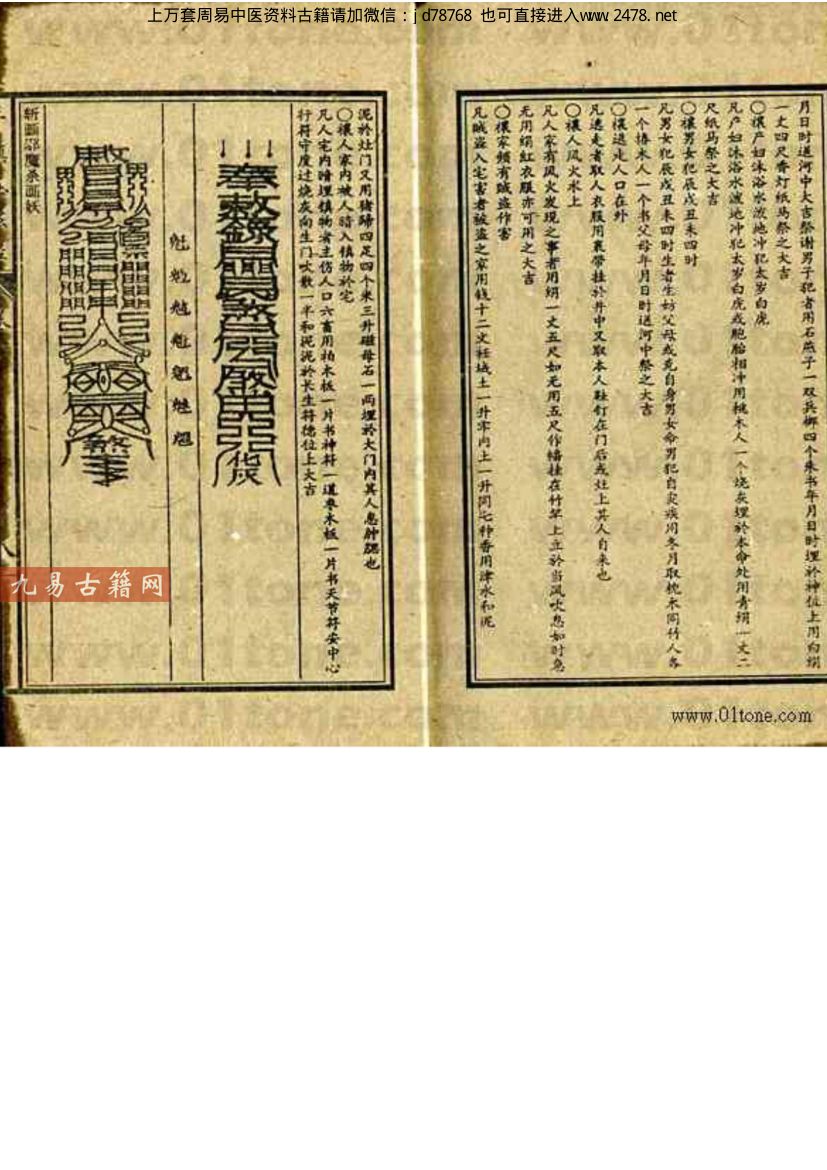 上万套周易中医资料古籍请加微信：jd78768 也可直接进入www.2478.net
月日时送河中大吉祭谢男子犯者用石燕子一双兵榔四个朱书年月日时埋於神位上用白绢
一丈四尺香灯纸马祭之大吉
〇禳产妇沐浴水泼地冲犯太岁白虎
凡产妇沐浴水泼地冲犯太岁白虎或胞胎相冲用桃木人一个烧炭埋於本命处用青绢一丈二
尺纸马祭之大吉
〇禳男女犯辰戌丑未四时
凡男女犯辰戌丑未四时生者生妨父母或克自身男女命男犯自灾疾用冬月取枕木同竹人各
一个椿木人一个书父母年月日时送河中祭之大吉
〇禳逃走人口在外
凡逃走者取人衣服用裹带挂於井中又取本人鞋钉在门后或灶上其人自来也
〇禳人风火水上
凡人家有风火发现之事者用绢一丈五尺如无用五尺作幡挂在竹竿上立於当风吹急如时急
无用绢红衣服亦可用之大吉
〇禳家频有贼盗作害
凡贼盗入宅害者被盗之家用钱十二文狂城土一升牢内土一升同七种香用津水和泥
泥於灶门又用猪蹄四足四个米三升磁母石一两埋於大门内其人患肿腮也
〇禳人家内被人暗入镇物於宅
凡人宅内暗埋镇物者主伤人口六畜用柏木板一片书神符一道枣木板一片书天节符安中心
行符守度过烧灰向生门吹散一半和泥泥於长生符德位上大吉
九易古籍网
www.01tone.com